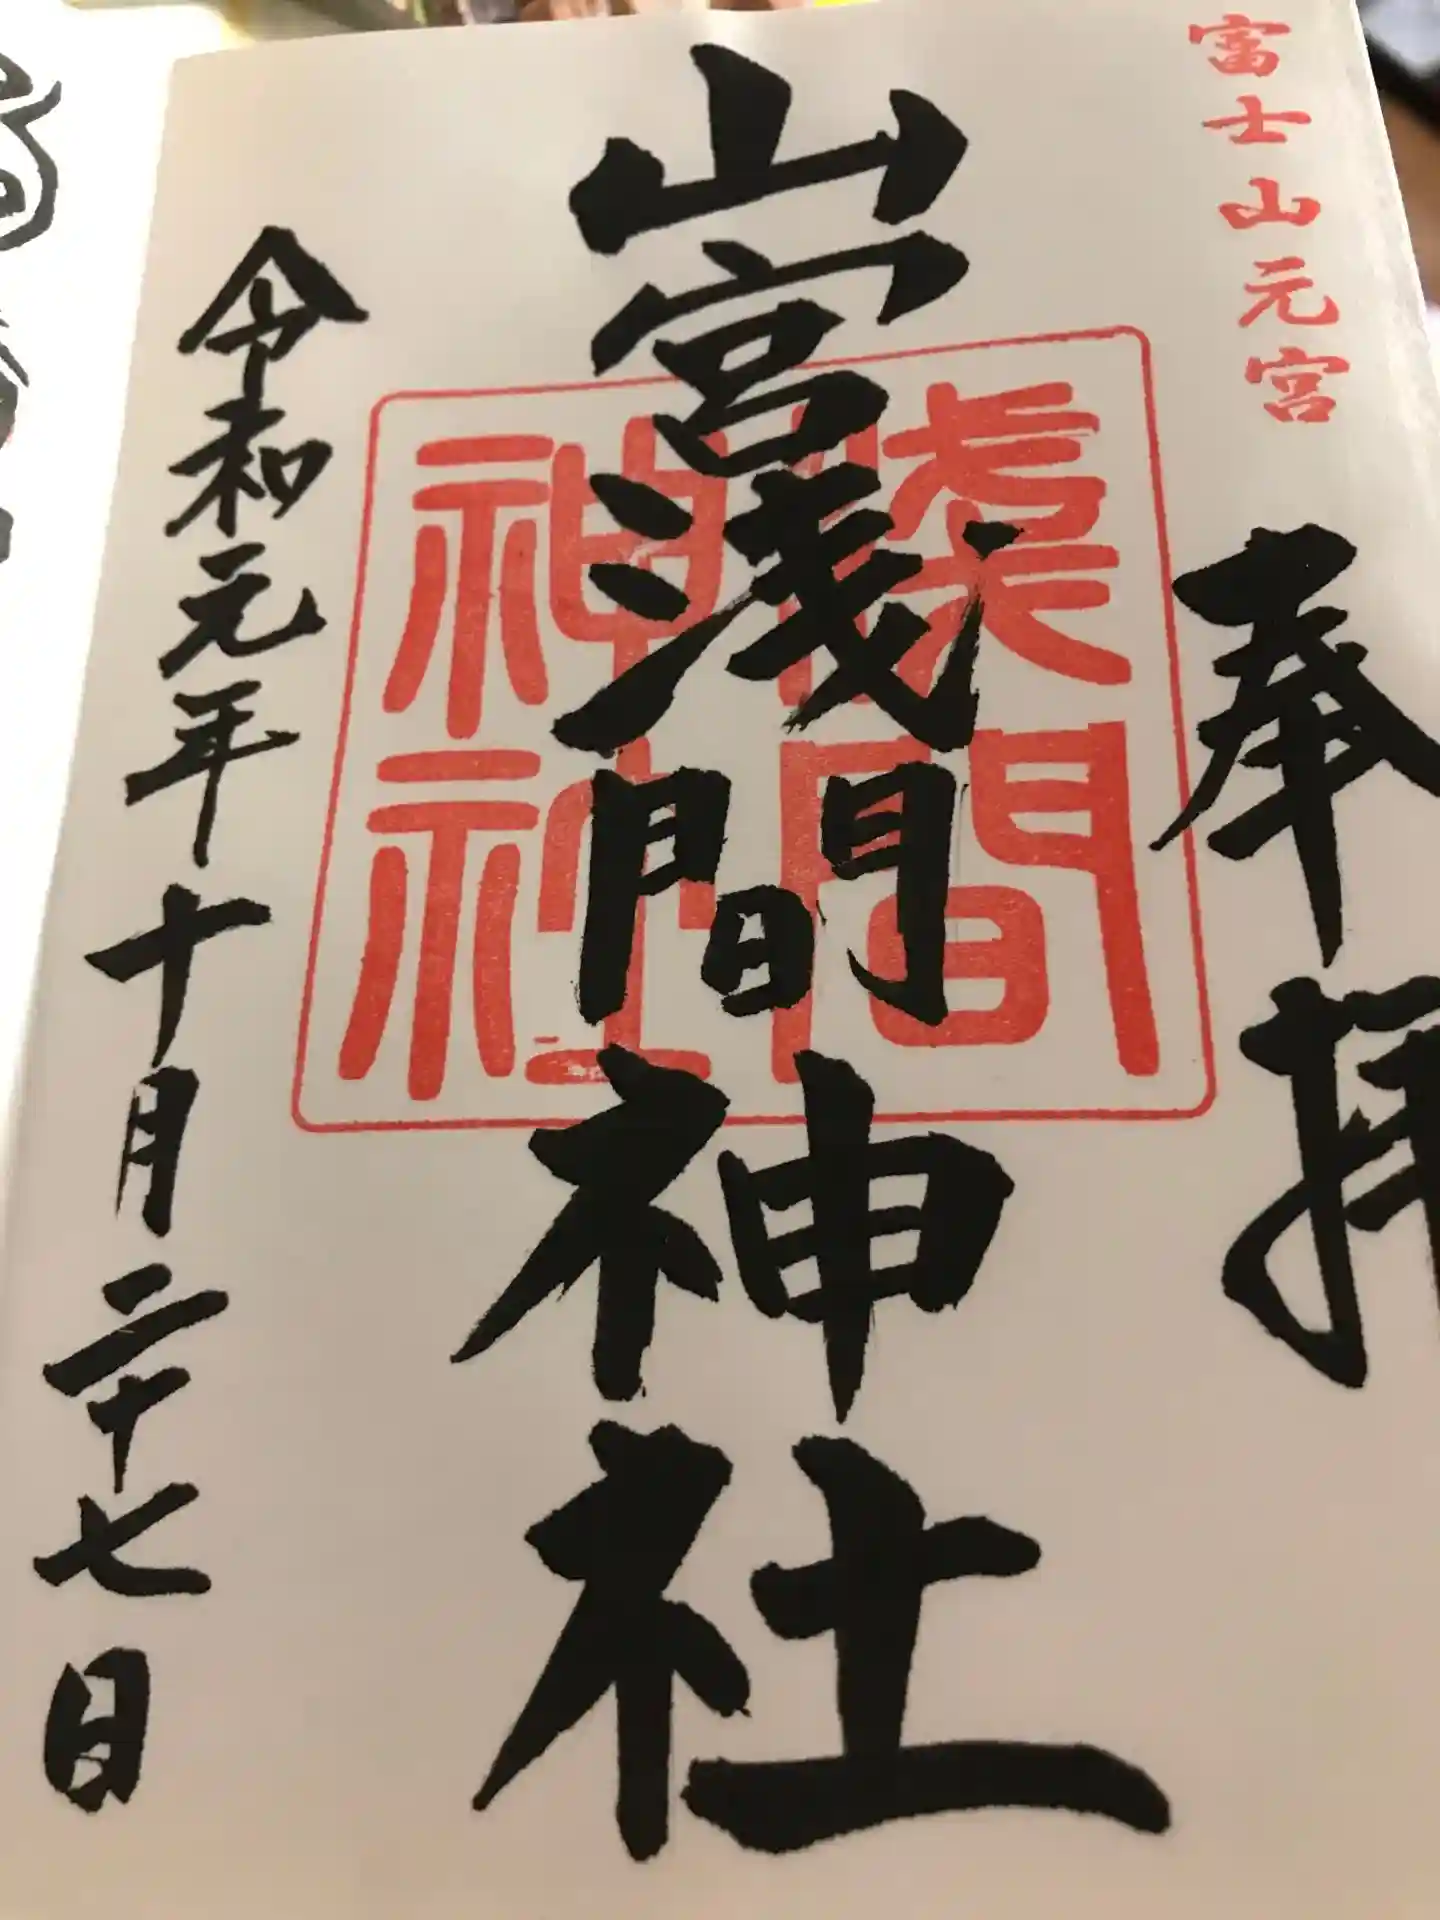 富士山元宮
奉拝
山宮浅間神社
間
神社
令和元年十月二十七日